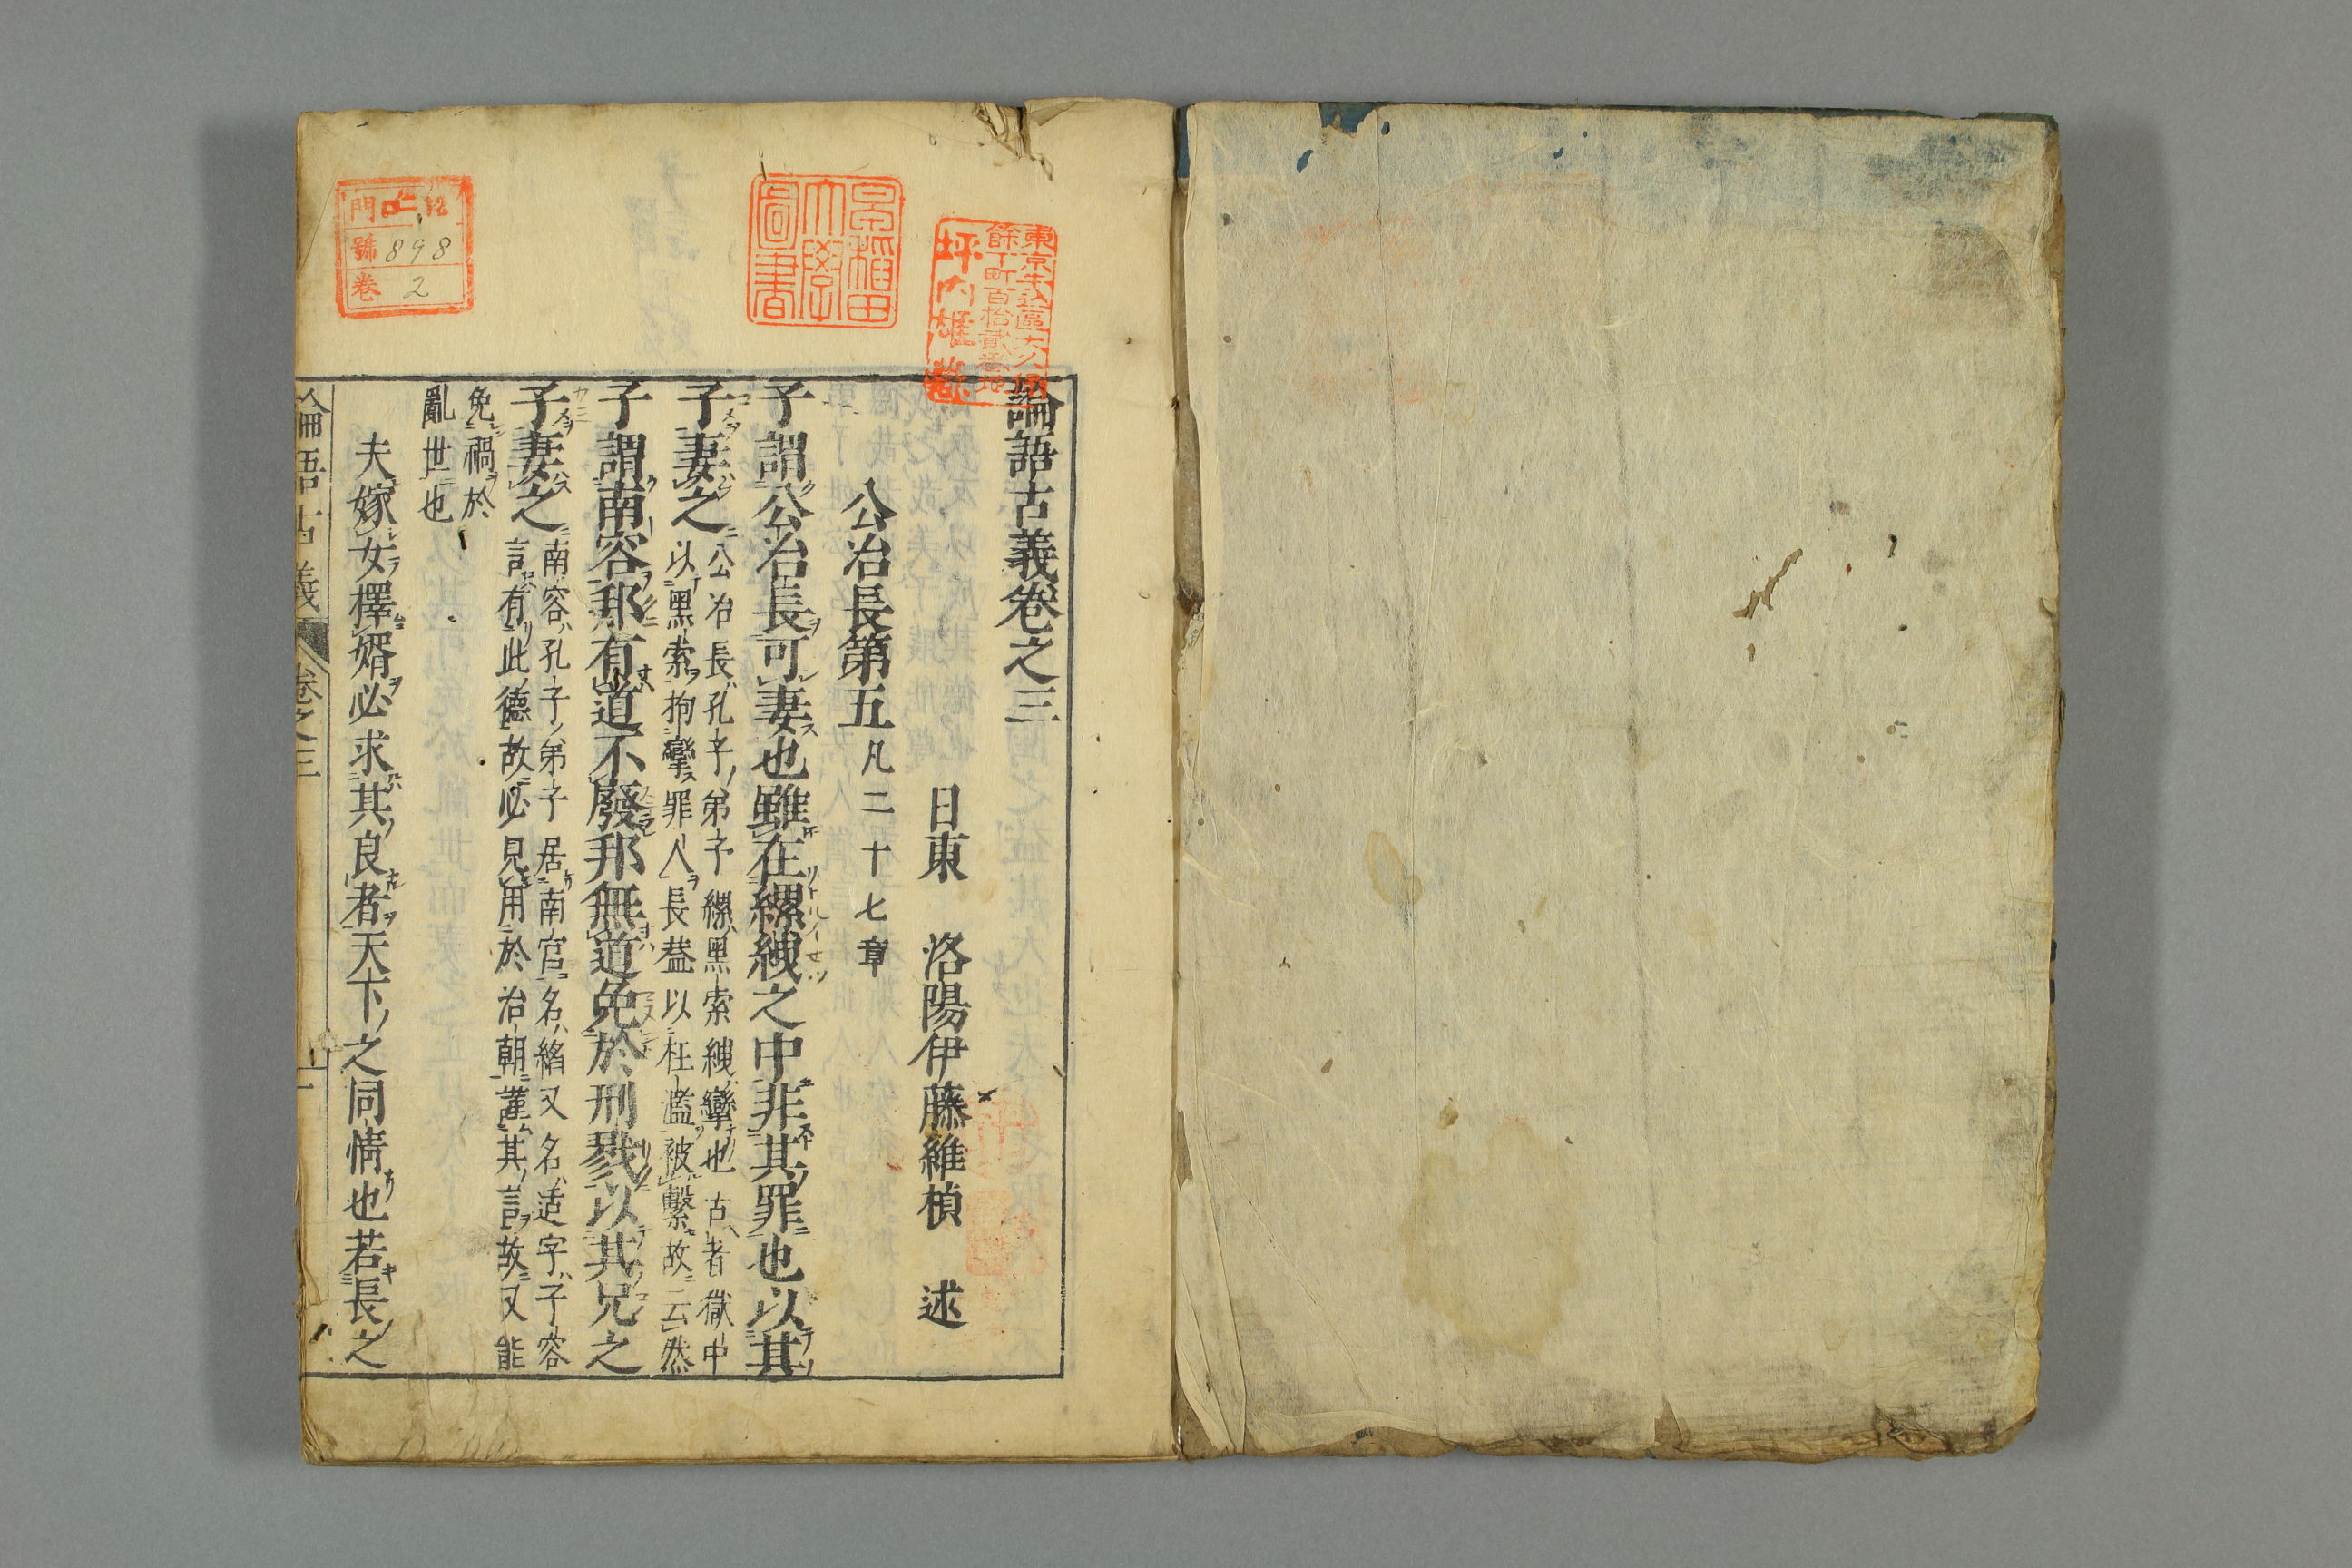 論語古義卷之三
日東 洛陽伊藤維楨 述
公冶長第五 凡二十七章
子謂公冶長可妻也雖在縲絏之中非其罪也以其
子妻之 公冶長孔子弟子縲黑索絏攣也古者獄中
以黑索拘攣罪人長葢以枉濫被繫故云然
子謂南容邦有道不廢邦無道免於刑戮以其兄之
子妻之 南容孔子弟子居南宮名縚又名适字子容
言有此德故必見用於治朝謹其言故又能
免禍於
亂世也
夫嫁女擇婿必求其良者天下之同情也若長之
論語古義 卷之三
東京牛込區大久保
餘丁町百拾貳番地
坪內雄藏
早稲田
大學
圖書
門
號 898
卷 2